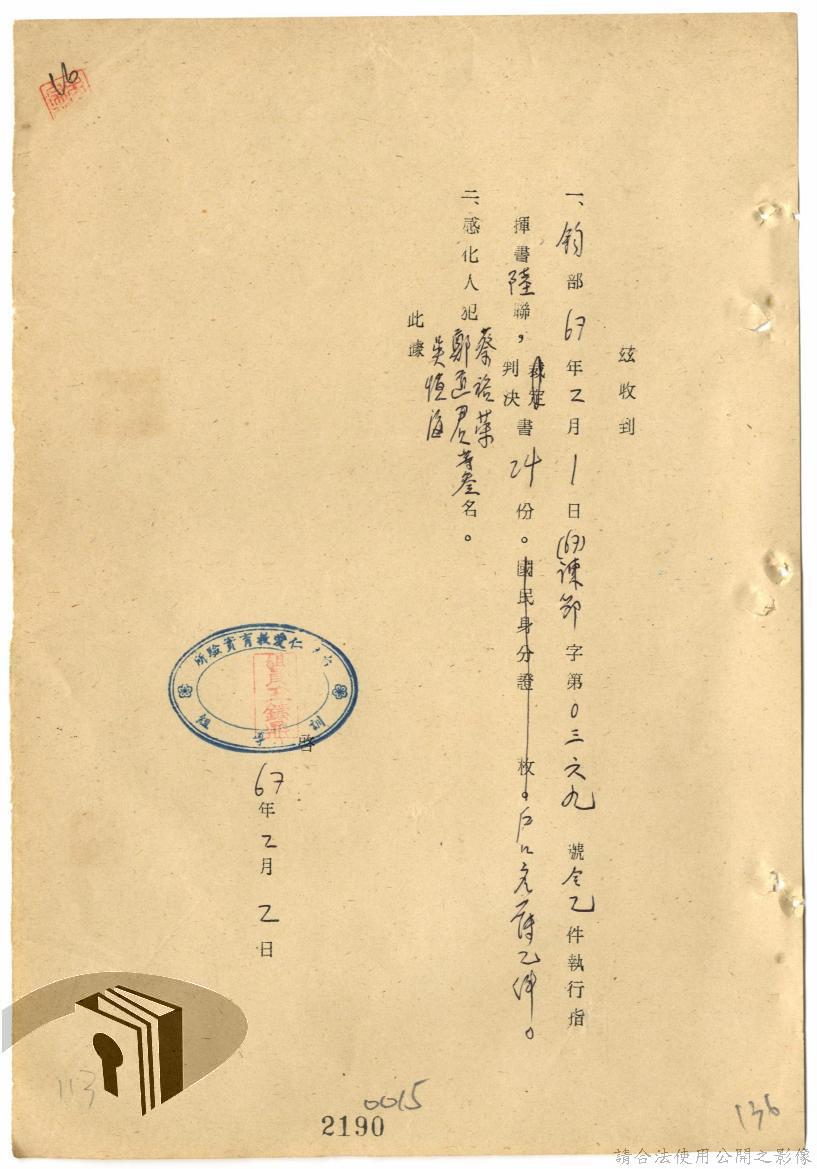 16
茲收到
一、鈞部67年2月1日(67)諫節字第0三六九號令乙件執行指
揮書陸聯，判決書24份。國民身分證 枚。戶口名簿乙件。
二、感化人犯蔡裕榮
鄭道君等叁名。
吳恒海
此據
仁愛教育實驗所
訓導組
啓
67年2月2日
113
0015
2190
136
請合法使用公開之影像